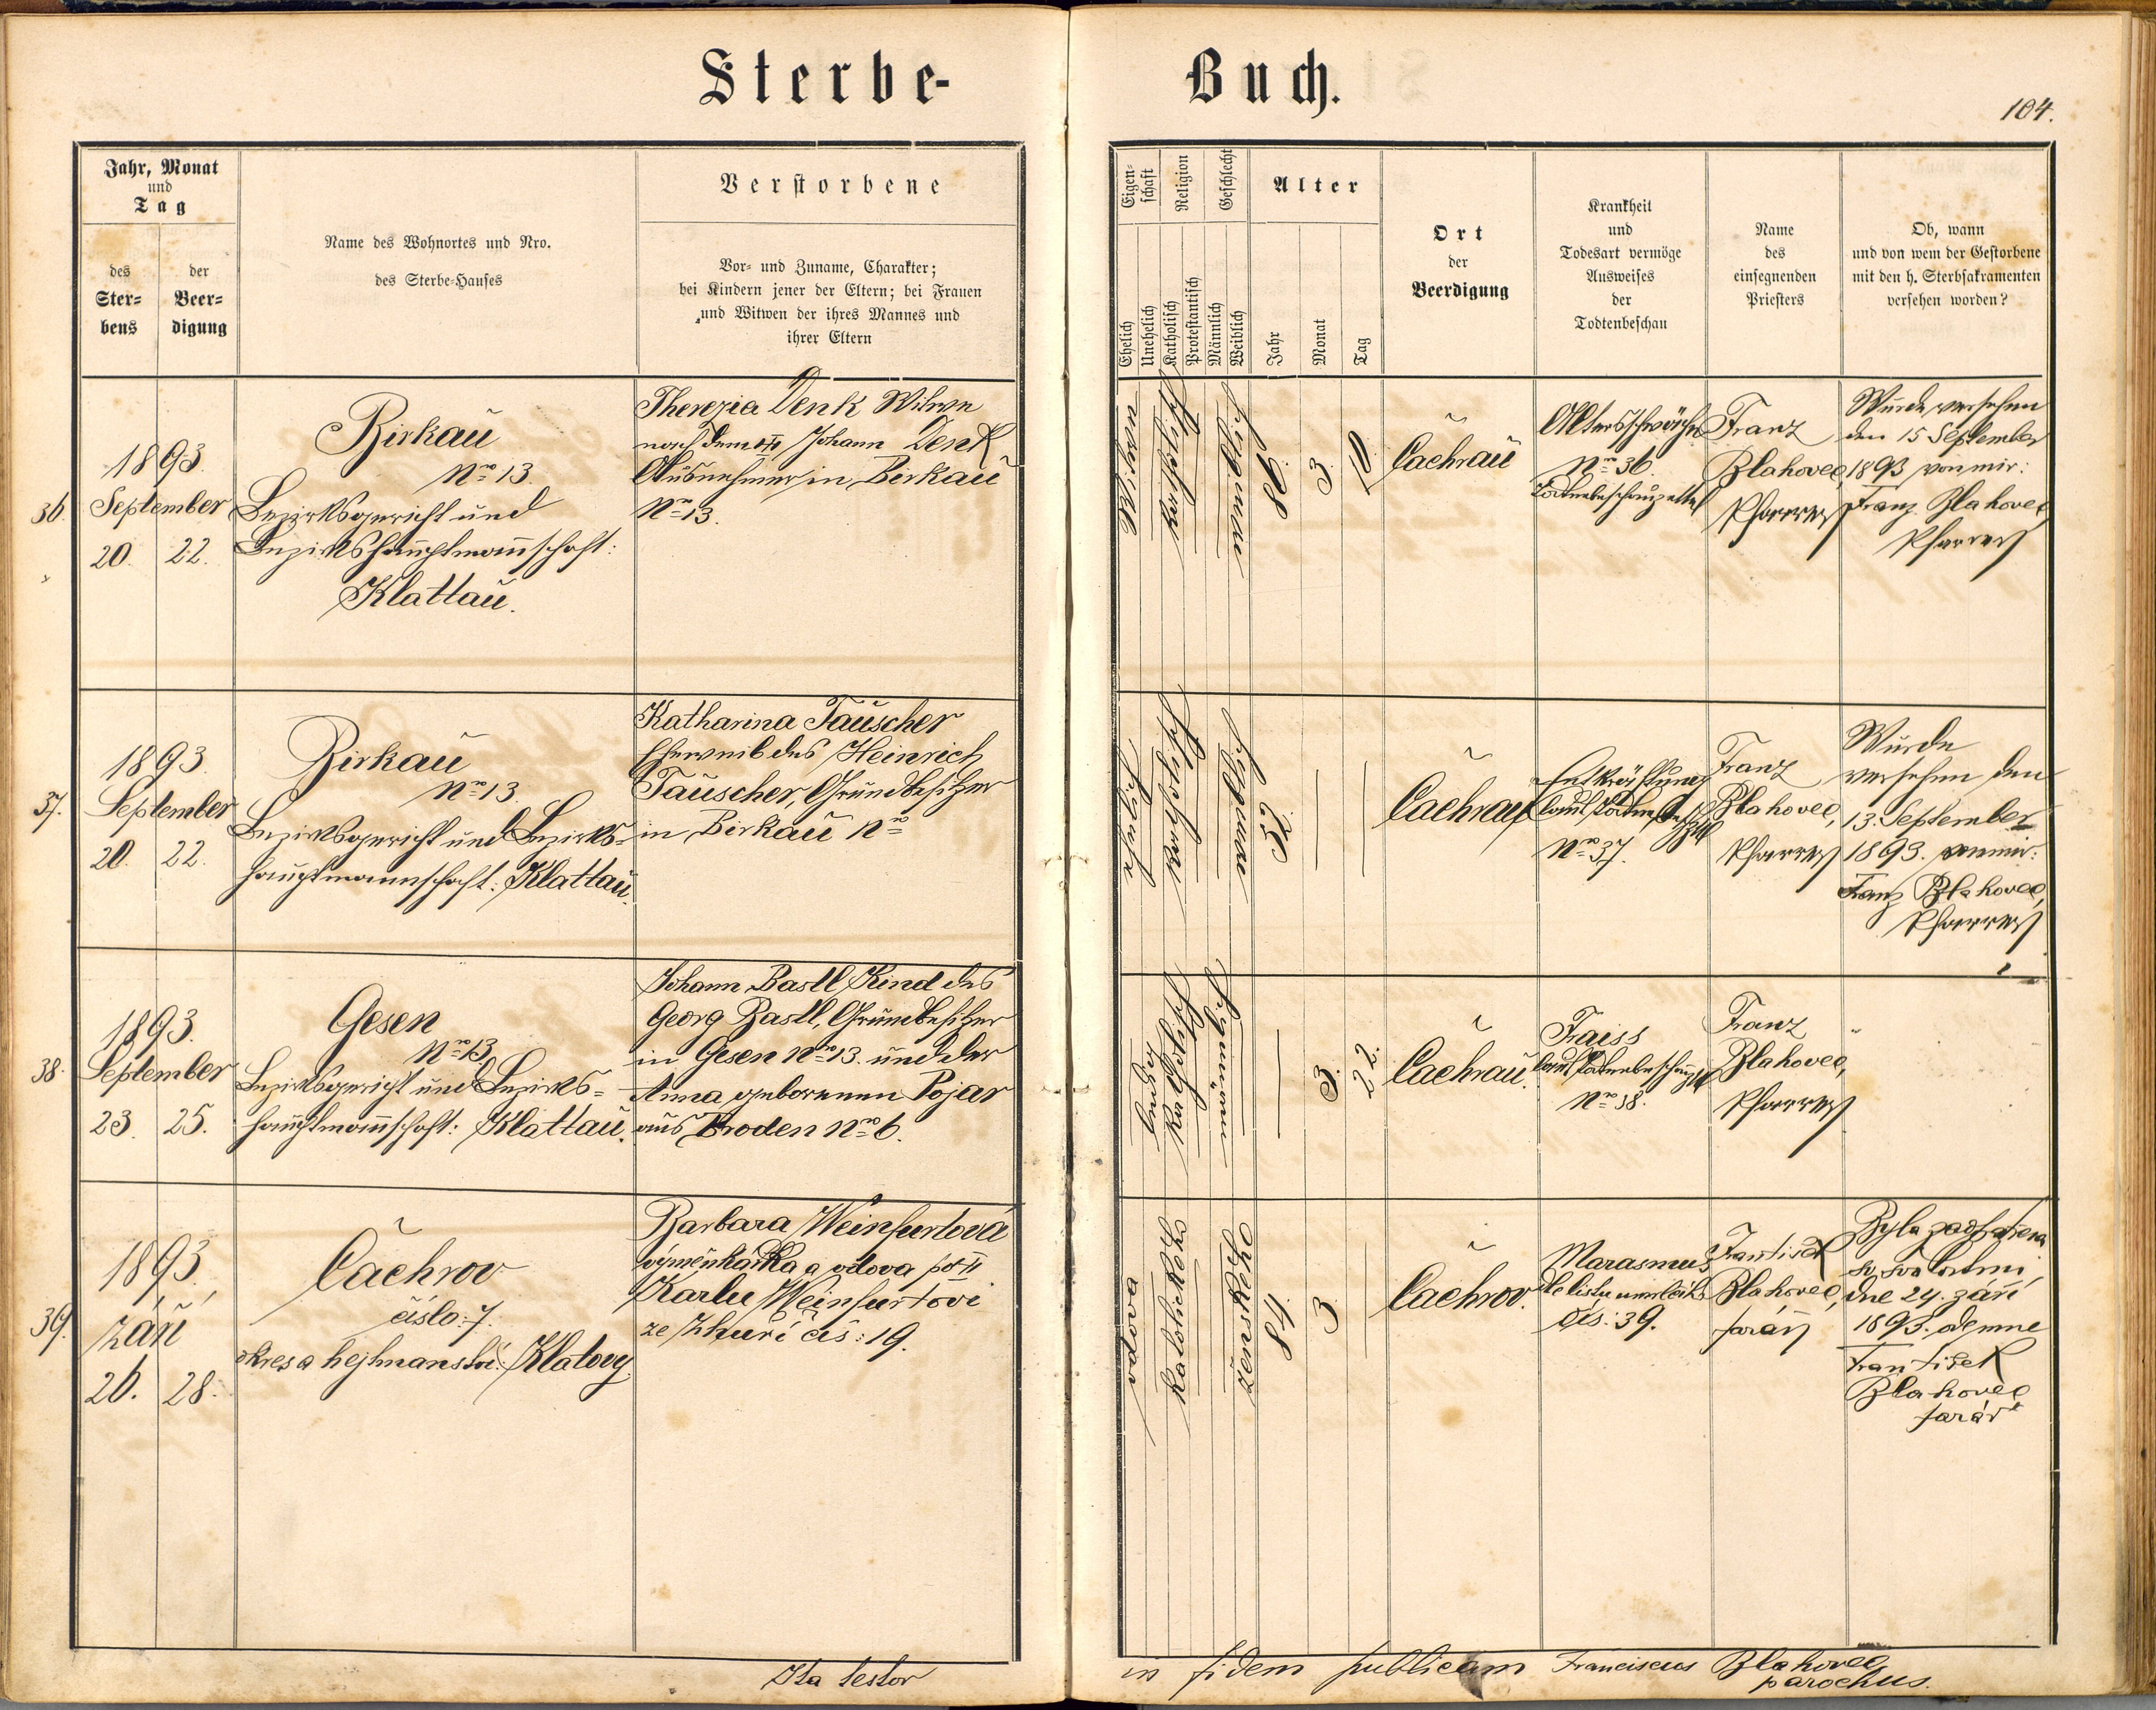 Sterbe-
Buch.
104.
Jahr, Monat
und
Tag
des
Ster-
bens
der
Beer-
digung
Name des Wohnortes und Nro.
des Sterbe-Hauses
Verstorbene
Vor- und Zuname, Charakter;
bei Kindern jener der Eltern; bei Frauen
und Witwen der ihres Mannes und
ihrer Eltern
Eigen-
schaft
Religion
Geschlecht
Alter
Ehelich
Unehelich
Katholisch
Protestantisch
Männlich
Weiblich
Jahr
Monat
Tag
Ort
der
Beerdigung
Krankheit
und
Todesart vermöge
Ausweises
der
Todtenbeschau
Name
des
einsegnenden
Priesters
Ob, wann
und von wem der Gestorbene
mit den h. Sterbsakramenten
versehen worden?
36.
1893.
September
20. 22.
Birkau
Nro 13.
Bezirksgericht und
Bezirkshauptmannschaft:
Klattau.
Therezia Denk Witwe
nach dem Johann Denk
Ausnehmer in Birkau
Nro 13.
katholisch
86.
3.
10.
Čachrau
Altersschwäche
Nro 36.
Todtenbeschauzettel
Franz
Blahovec,
Pfarrer
Wurde versehen
den 15 September
1893 von mir:
Franz Blahovec
Pfarrer
37.
1893.
September
20. 22.
Birkau
Nro 13.
Bezirksgericht und Bezirks-
hauptmannschaft: Klattau.
Katharina Tauscher
Eheweib des Heinrich
Tauscher, Grundbesitzer
in Birkau Nro
katholisch
Čachrau
Entkräftung
laut
Nro 37.
Franz
Blahovec,
Pfarrer
Wurde
versehen den
13. September
1893. von mir:
Franz Blahovec,
Pfarrer
38.
1893.
September
23. 25.
Gesen
Nro 13.
Bezirksgericht und Bezirks-
hauptmannschaft: Klattau.
Johann Bastl Kind des
Georg Bastl, Grundbesitzer
in Gesen Nro 13. und der
Anna geborenen Pojar
aus Broden Nro 6.
ledig
katholisch
3.
22.
Čachrau.
Fraiss
laut
Nro 38.
Franz
Blahovec,
Pfarrer
39.
1893.
září
26. 28.
Čachrov
číslo: 7.
okres a hejtmanství: Klatovy.
Barbara Weinfurtová
výměnkářka a vdova po
Karlu Weinfurtovi
ze Zhuří čís: 19.
vdova
katolického
ženského
84.
3
Čachrov.
Marasmus
dle listu
čís: 39.
František
Blahovec,
farář
Byla zaopatřena
sv. svátostmi
dne 24. září
1893. odemne
František
Blahovec
farář
Ita testor
in fidem publicam Franciscus Blahovec
parochus.